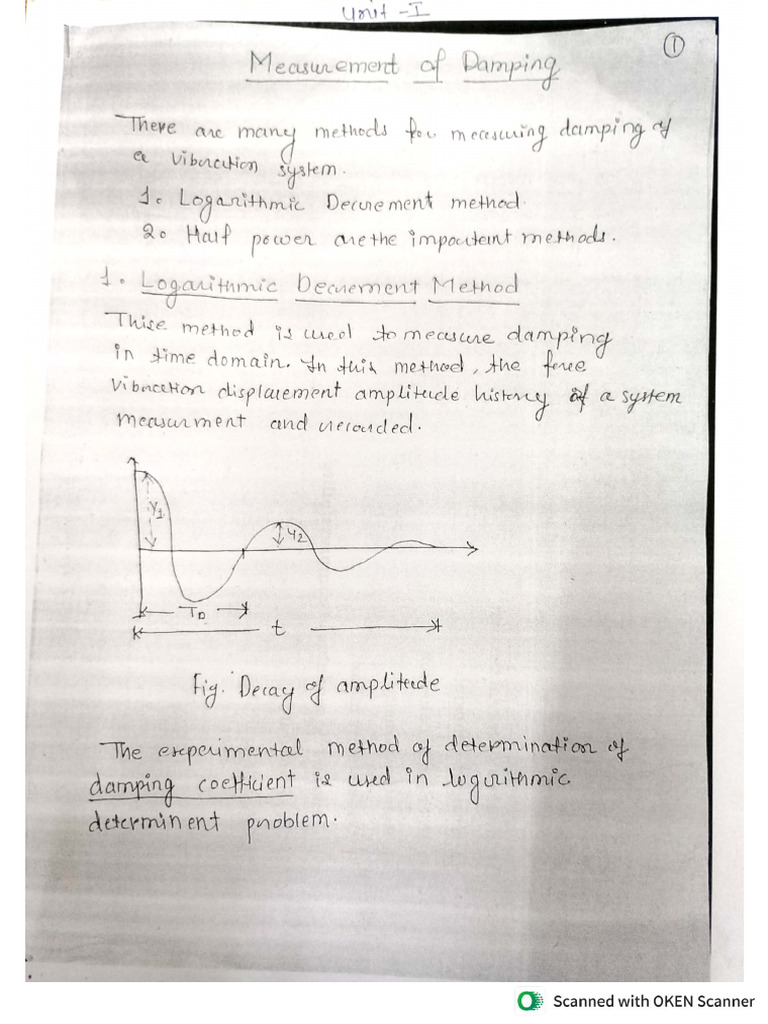 Unit - I
1
Measurement of Damping
There are many methods for measuring damping of
a vibration system.
1. Logarithmic Decrement method.
2. Half power are the important methods.
1. Logarithmic Decrement Method
Thise method is used to measure damping
in time domain. In this method, the free
vibration displacement amplitude history of a system
measurment and recorded.
Y1
Y2
TD
t
Fig. Decay of amplitude
The experimental method of determination of
damping coefficient is used in logarithmic
determinent problem.
Scanned with OKEN Scanner